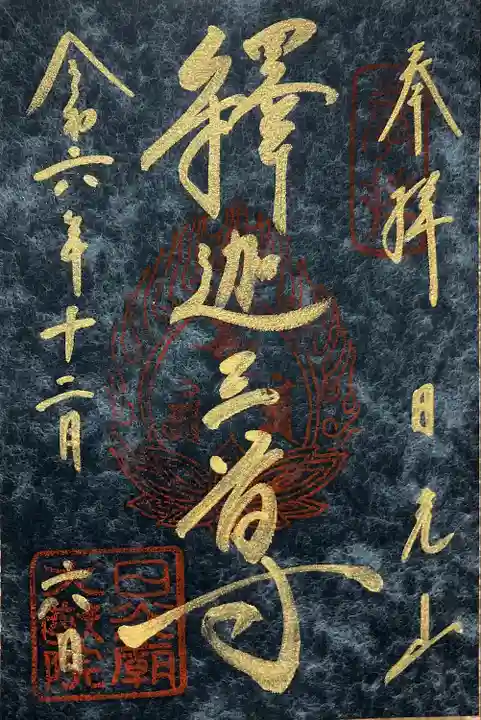 奉拝 日光山
釋迦三尊
令和六年十二月
六日
日光廟
大猷院